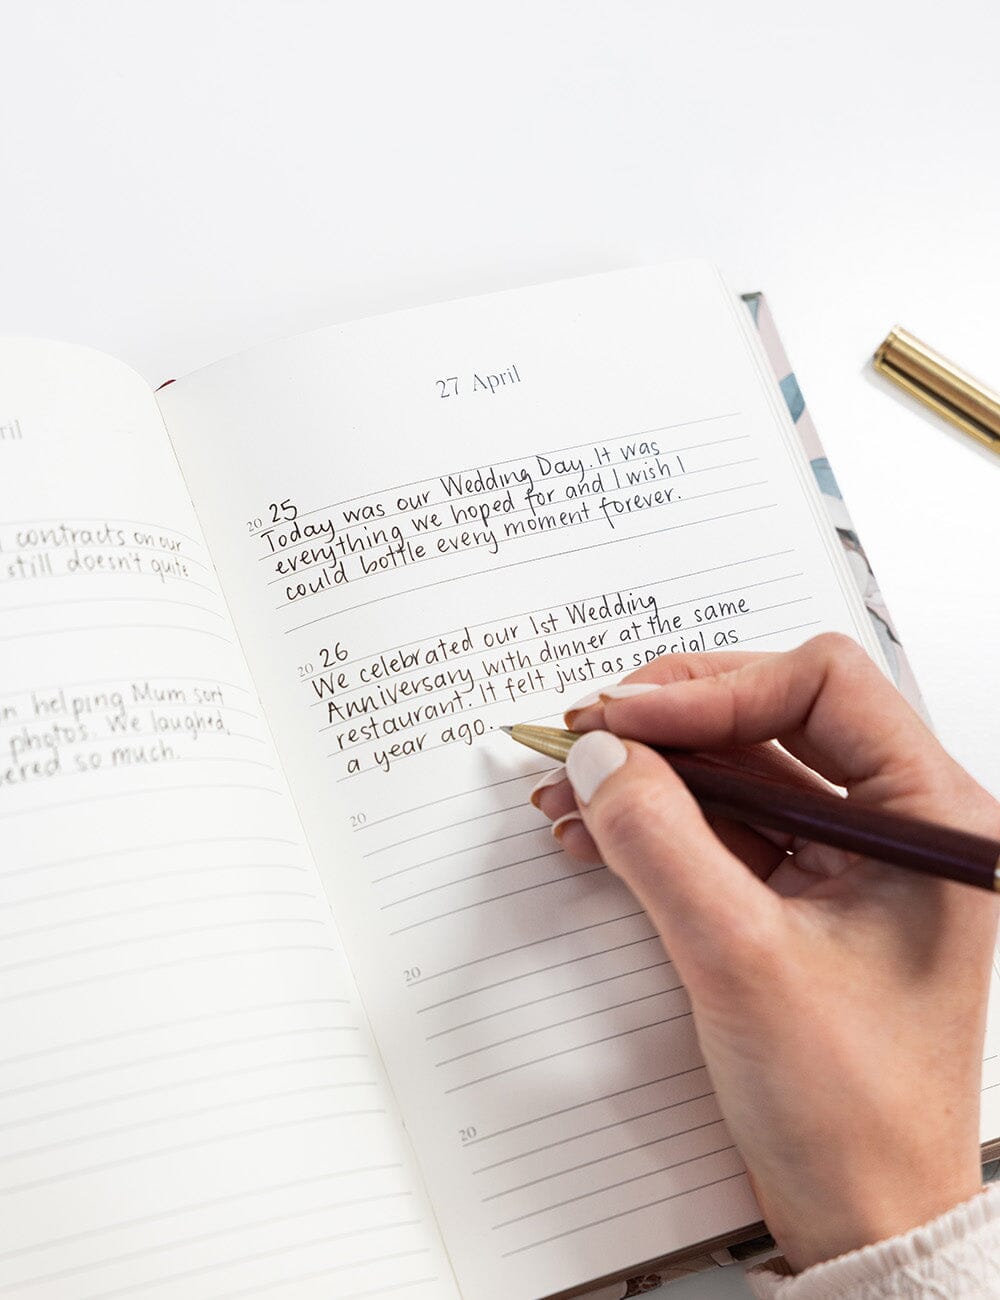 ril
contracts on our
still doesn't quite
helping Mum sort
photos. We laughed,
so much.
27 April
20 25
Today was our Wedding Day. It was
everything we hoped for and I wish I
could bottle every moment forever.
20 26
We celebrated our 1st Wedding
Anniversary with dinner at the same
restaurant. It felt just as special as
a year ago.
20
20
20